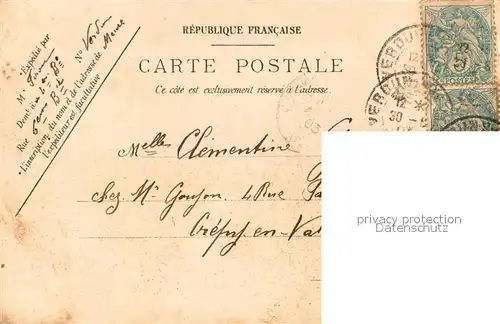 RÉPUBLIQUE FRANÇAISE
CARTE POSTALE
Ce côté est exclusivement réservé à l'adresse.
Expédié par
M
Demt à
Rue
N° Verdun
Meuse
L'inscription du nom et de l'adresse de
l'expéditeur est facultative
VERDUN
12
POSTES
5
VERDUN
12
30
Melles Clémentine
chez Mr Goujon, 4 Rue
Crépy-en-Val
privacy protection
watermark